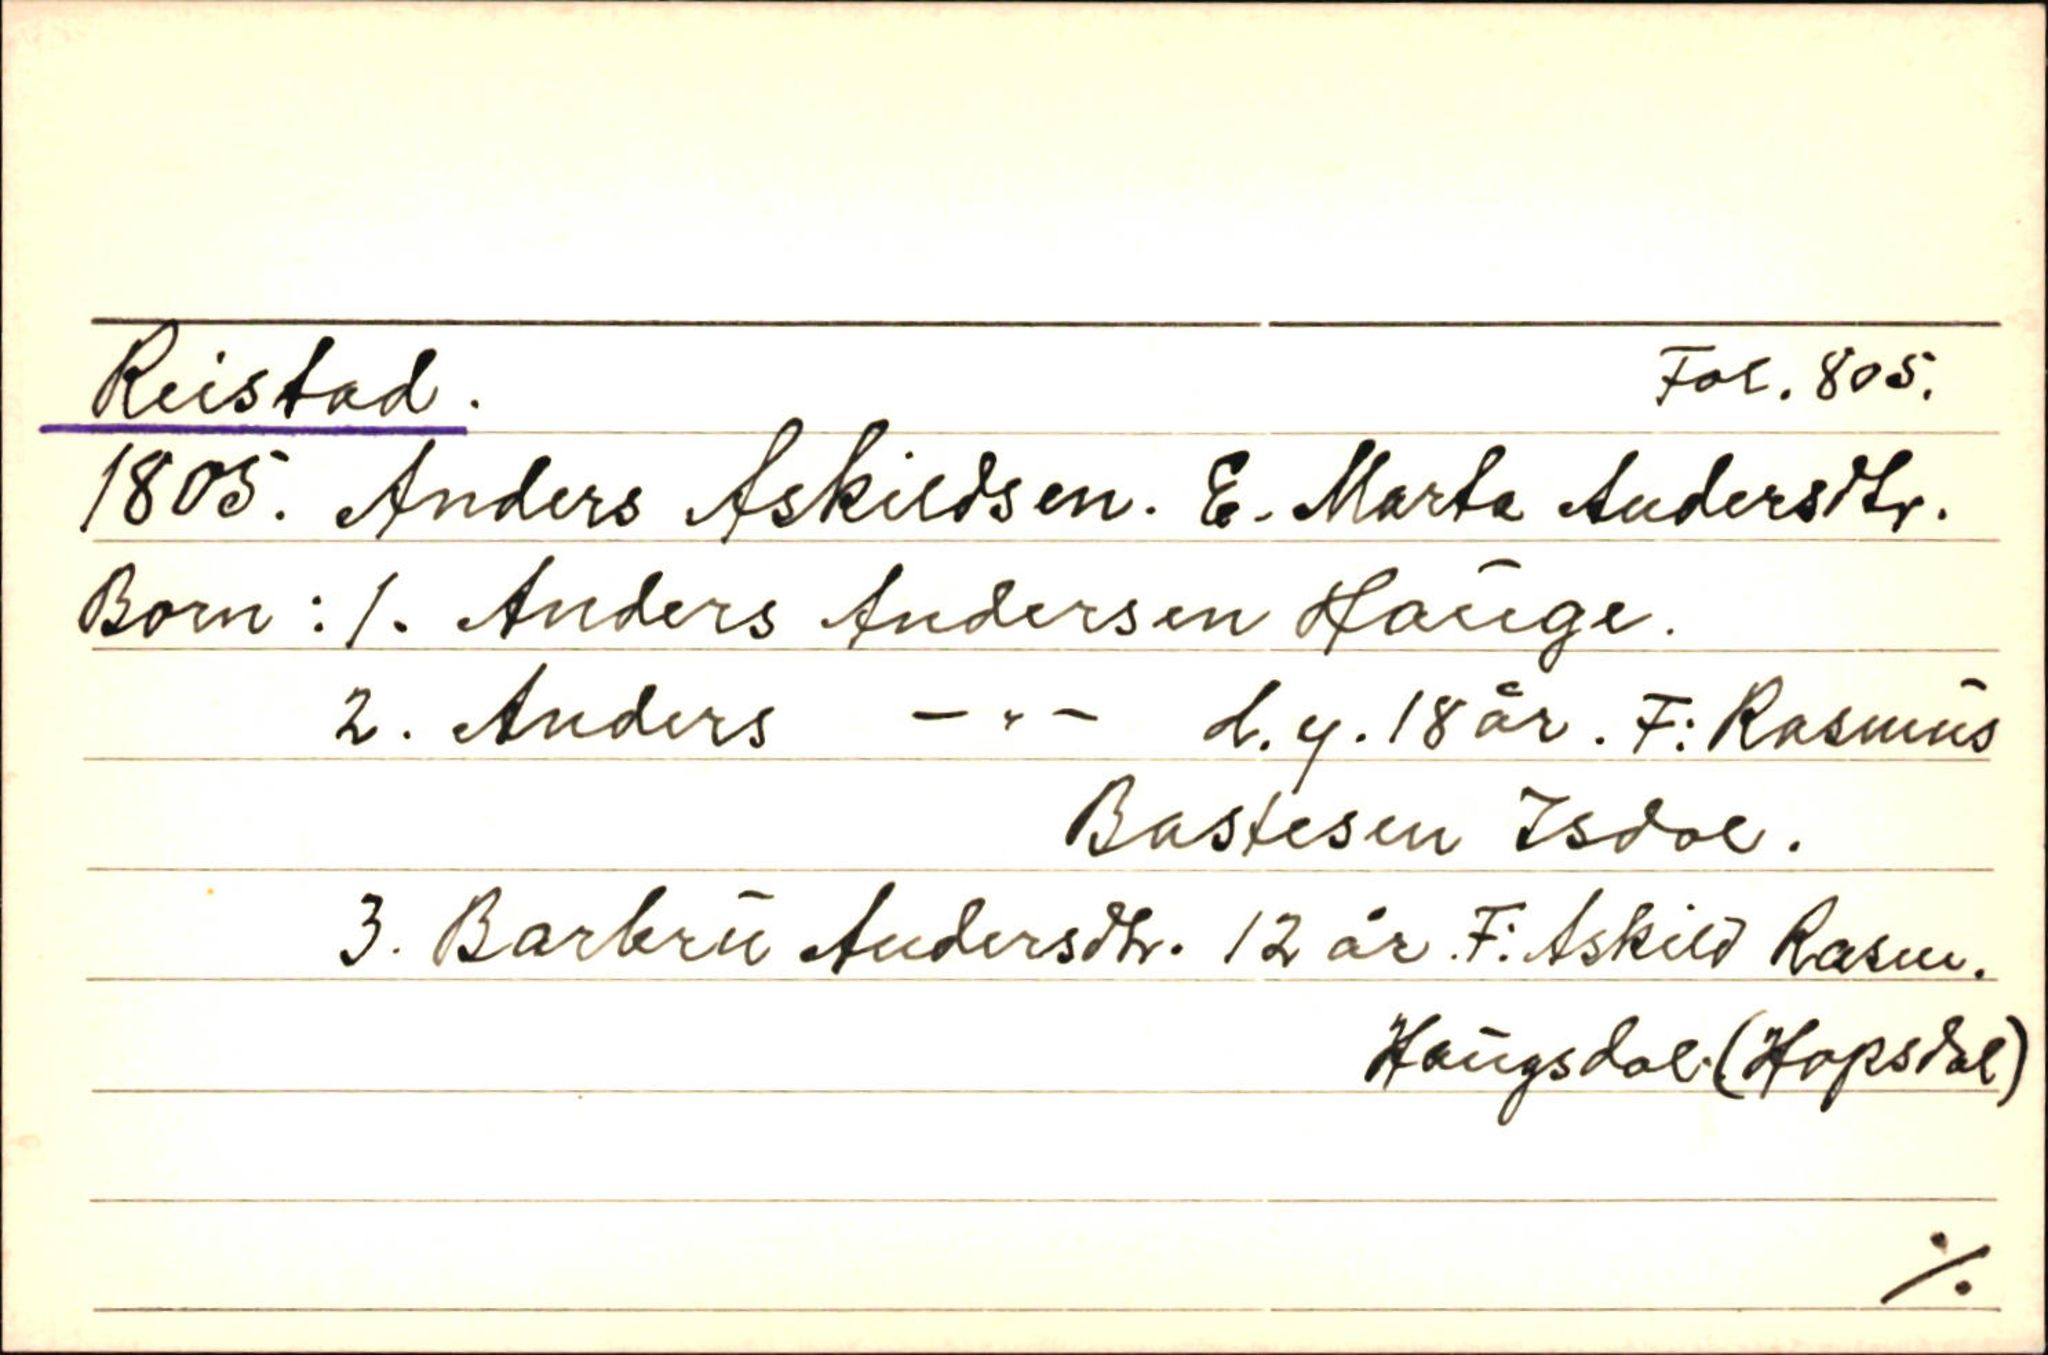 Reistad. Fol. 805.
1805. Anders Askildsen. E. Marta Andersdtr.
Born: 1. Anders Andersen Hauge.
2. Anders —"— d.y. 18 år. F: Rasmus
Bastesen Isdal.
3. Barbru Andersdtr. 12 år. F: Askild Rasm.
Haugsdal (Hopsdal)
./.